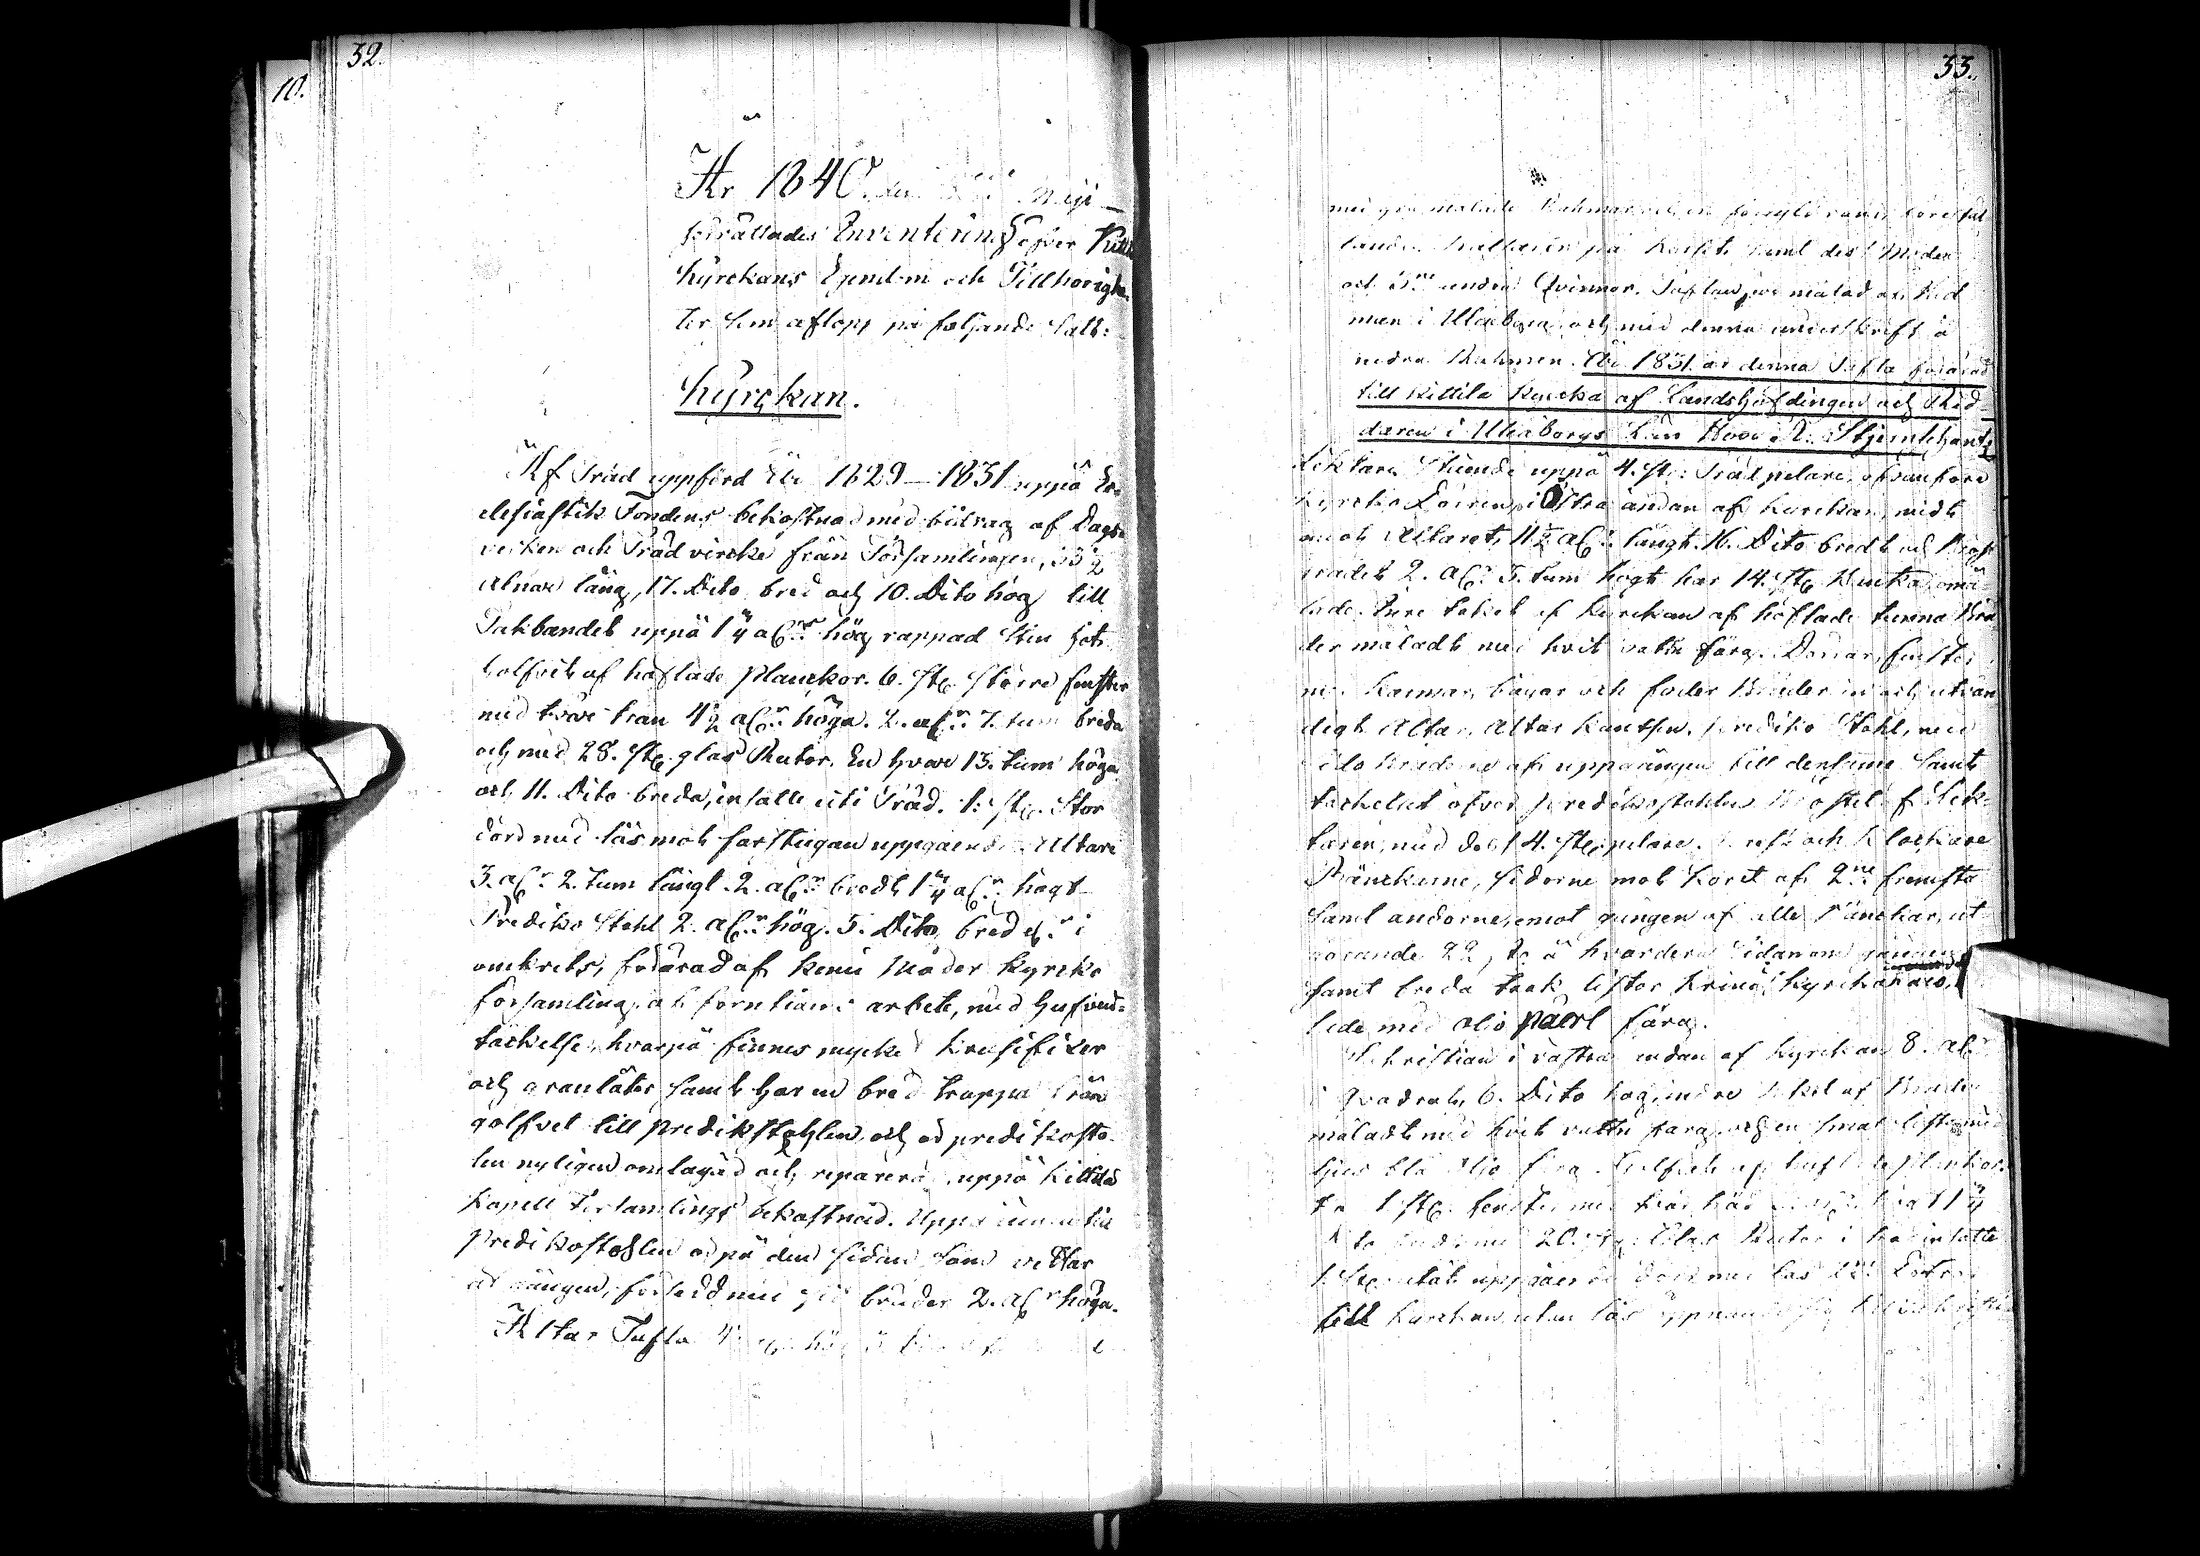 52.
10.
År 1840. Maji
förrättades Inventering öfver Kitti
kyrckans Egendom och Tillhörighe
ter som aflopp på följande Sätt:
Kyrckan.
Af Träd uppförd Åri 1829–1831 uppå Ec-
clesiastik Fondens bekostnad med bidrag af Dags-
verken och Trädvircke från Församlingen, 33½
alnar lång, 17. Dito bred och 10. Dito hög till
Takbandet uppå 1¼ alnar hög rappad Sten fot.
Golfvet af haflade Planckor. 6. St. Större fenster
med tvär trän 4½ aln. höga. 2. aln. 7. tum breda
och med 28. St. glas Rutor. En hvar 13. tum höga
och 11. Dito breda, insatte uti Träd. 1. St. Stor
dörr med lås mot farstugan uppgående. Altare
3. aln. 2. tum långt. 2. aln. bredt 1¼ aln. högt
Prediko Stohl 2. aln. hög. 5. Dito bred i
omkrets, förärad af Kemi Moder Kyrcko
församling, ett forntians arbete, med hufvud-
täckelse, hvarpå finnes mycket Krusifixer
och granlåter samt har en bred trappa från
golfvet till predikstohlen, och är prediksto-
len nyligen omlagad och reparerad uppå Kittilä
Kapell Församlings bekostnad. Uppgången till
Predikostohlen är på den sidan som vettar
åt gången, försedd med bräder 2. aln. höga.
Altar Tafla 4 hög
33.
med målade Rahmar och en förgyld ram, förestäl
lande Frälsaren på Korset samt dess Moder
och 3ne andra Qvinnor. Taflan är målad af Hed
man i Uleåborg och med denna underskrift å
nedra Rahmen. Åri 1831 är denna Tafla förärad
till Kittilä Kyrcka af Landshöfdingen och Rid-
daren i Uleåborgs Län Herr R. Stjernschantz
Läktare Stående uppå 4. St. Träd pelare, ofvanföre
Kyrcko Dörren i Östra ändan af kyrckan, midt
emot Altaret, 11½ aln. långt. 16. Dito bredt och Bröst
2. aln. 5. tum högt har 14. St. Bänkar omå-
lade. Inre taket af kyrckan af höflade tunna Brä
der måladt med hvit vatn färg. Dörrar, fenster
med Karmar, bågar och foder Bräder in och utvän
digt Altar, Altar Kantsen, prediko Stohl, med
sido Bräderne af uppgången till densamme samt
täckelset öfver predikostohlen Bröstet af Läk-
taren, med dess 4. St. pelare. och Klockare
Bänckarne, sidorne mot Koret af 2ne fremste
samt andorne, emot gången af alle Bänckar, ut
görande 22, å hvardera Sidan om gången
samt breda taak listor kring kyrckan
lede med olio Paerl färg.
Sakristian i vastra ändan af Kyrckan 8. aln.
i Qvadrat, 6. Dito hög, indre taket af Bräder
måladt med hvit vatn färg och en smal list med
ljus blå oljo färg. Golfvet af haflade plankor.
1 St. fenster med
20. St. Glas Rutor i insatte
1. St. utåt uppgående dörr med lås
till Kyrckan utan lås öppnande sig till Sakristian